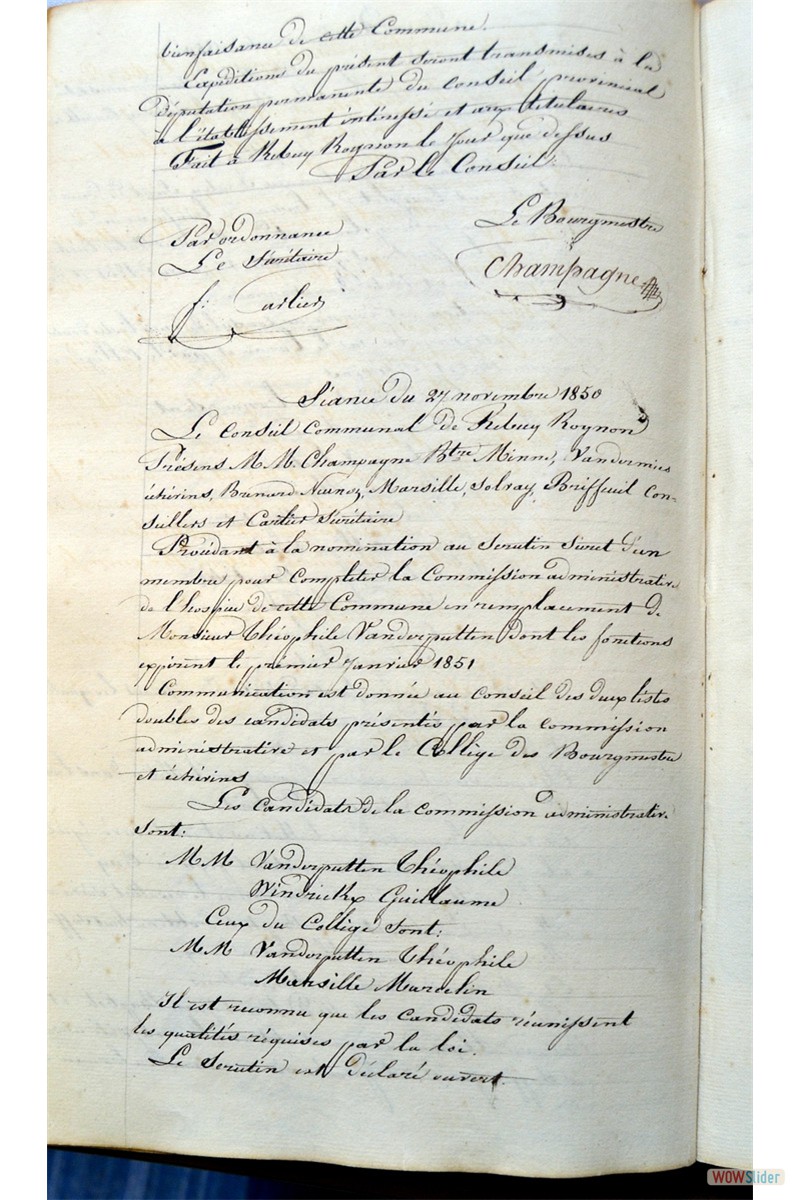 bienfaisance de cette Commune.
Expéditions du présent seront transmises à la
Députation permanente du conseil provincial
à l'établissement intéressé et aux titulaires
Fait à Rebecq Rognon le Jour que dessus
Par le Conseil:
Par ordonnance
Le Bourgmestre
Le Secrétaire
Champagne
f. Carlier
Séance du 27 novembre 1850
Le Conseil Communal de Rebecq Rognon
Présens M.M. Champagne Btre Minne, Vandermies
échévins, Brenard Marsille, Solvay, Briffeuil Con-
seillers et Carlier Secrétaire
Procédant à la nomination au Scrutin Secret d'un
membre pour completer la Commission administrative
de l'hospice de cette Commune en remplacement de
Monsieur Théophile Vanderputten dont les fonctions
expirent le premier Janvier 1851
Communication est donnée au conseil des deux listes
doubles des candidats présentés par la commission
administrative et par le Collège des Bourgmestre
et échévins
Les candidats de la commission administrative
sont:
MM Vanderputten Théophile
Windrickx Guillaume
Ceux du Collège sont:
MM Vanderputten Théophile
Marsille Marcelin
Il est reconnu que les candidats réunissent
les qualités réquises par la loi.
Le Scrutin est déclaré ouvert.
WOWSlider